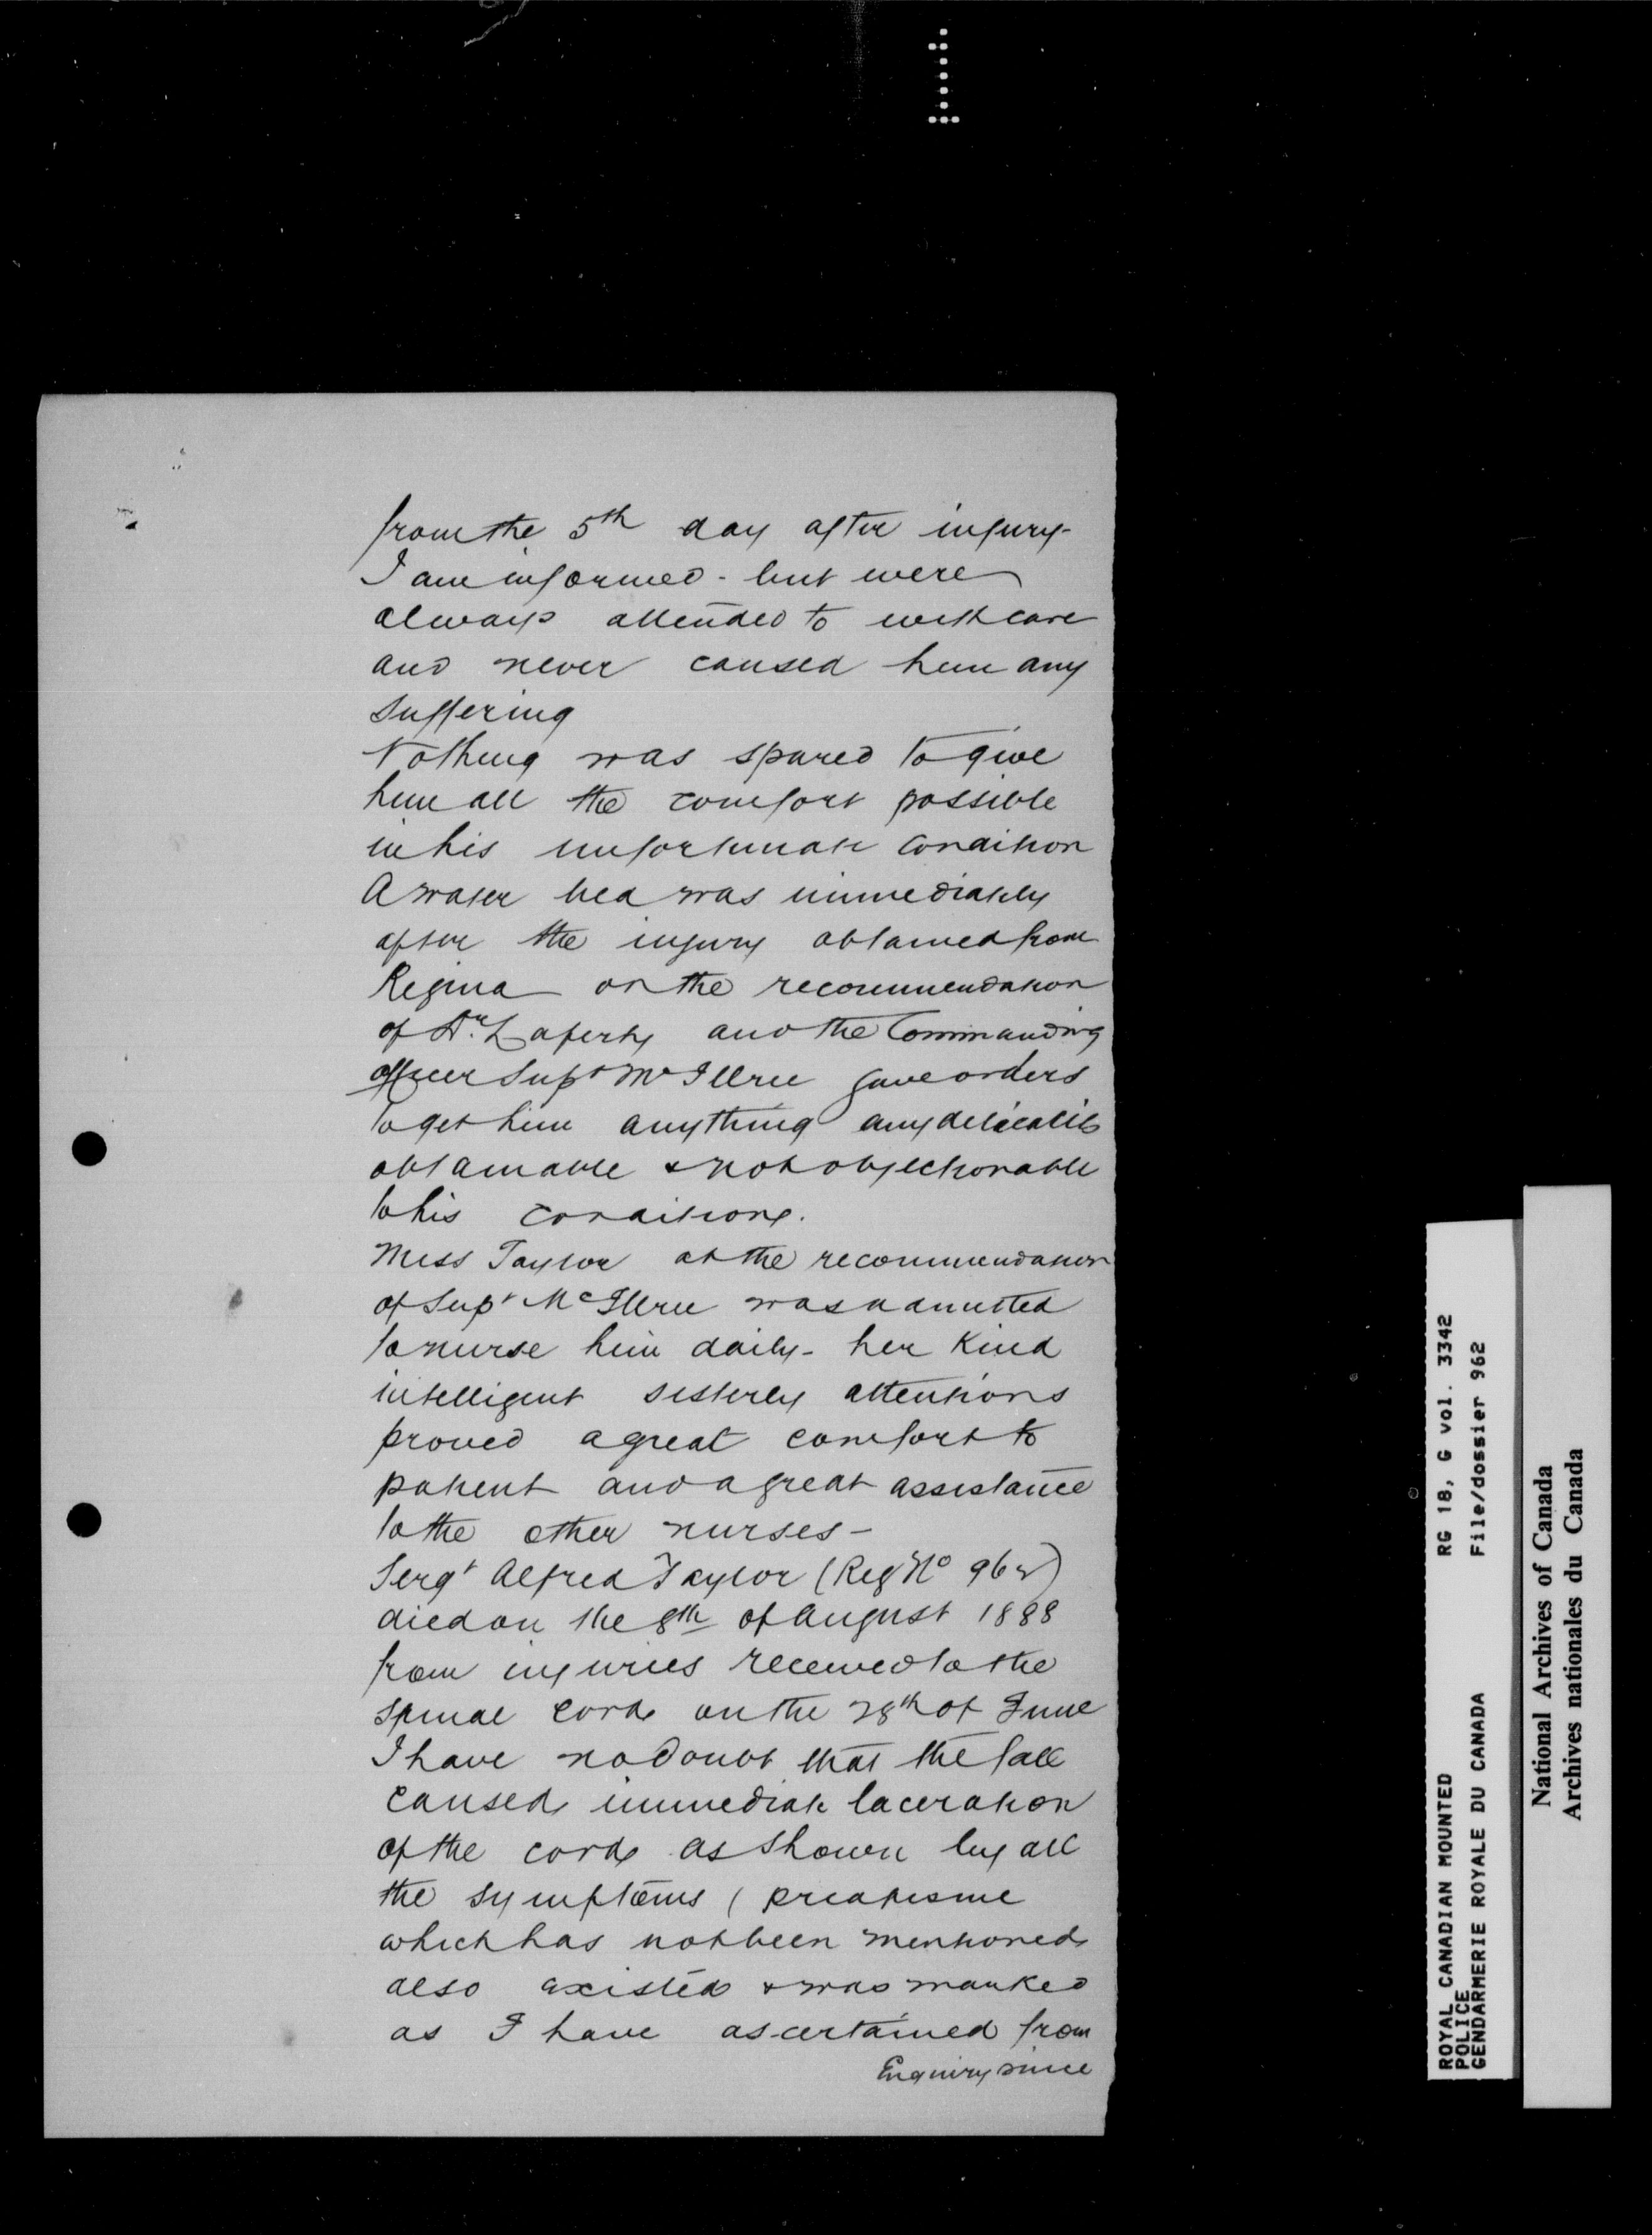 from the 5th day after injury-
I am informed - but were
always attended to with care
and never caused him any
suffering
Nothing was spared to give
him all the comfort possible
in his unfortunate condition
A water bed was immediately
after the injury obtained from
Regina on the recommendation
of Dr. Laferty and the Commanding
officer Supt McIllree gave orders
to get him anything any delicacies
obtainable & not objectionable
to his conditions.
Miss Taylor at the recommendation
of Supt McIllree was admitted
to nurse him daily- her kind
intelligent sisterly attentions
proved a great comfort to
patient and a great assistance
to the other nurses -
Sergt Alfred Taylor (Reg No 962)
died on the 8th of August 1888
from injuries received to the
spinal cord on the 28th of June
I have no doubt that the fall
caused immediate laceration
of the cord as shown by all
the symptoms ( priapisme
which has not been mentioned
also existed & was marked
as I have ascertained from
Enquiry since
ROYAL CANADIAN MOUNTED RG 18, G vol. 3342
POLICE
GENDARMERIE ROYALE DU CANADA File/dossier 962
National Archives of Canada
Archives nationales du Canada